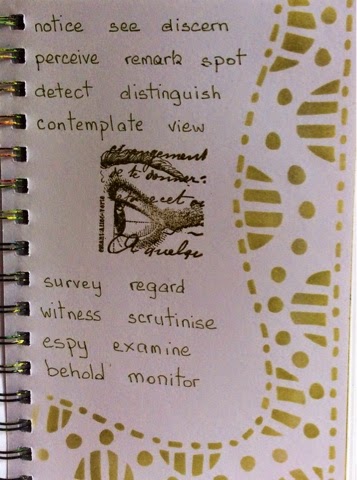 notice see discern
perceive remark spot
detect distinguish
contemplate view
changement
de te donner:
A quelqu
survey regard
witness scrutinise
espy examine
behold monitor